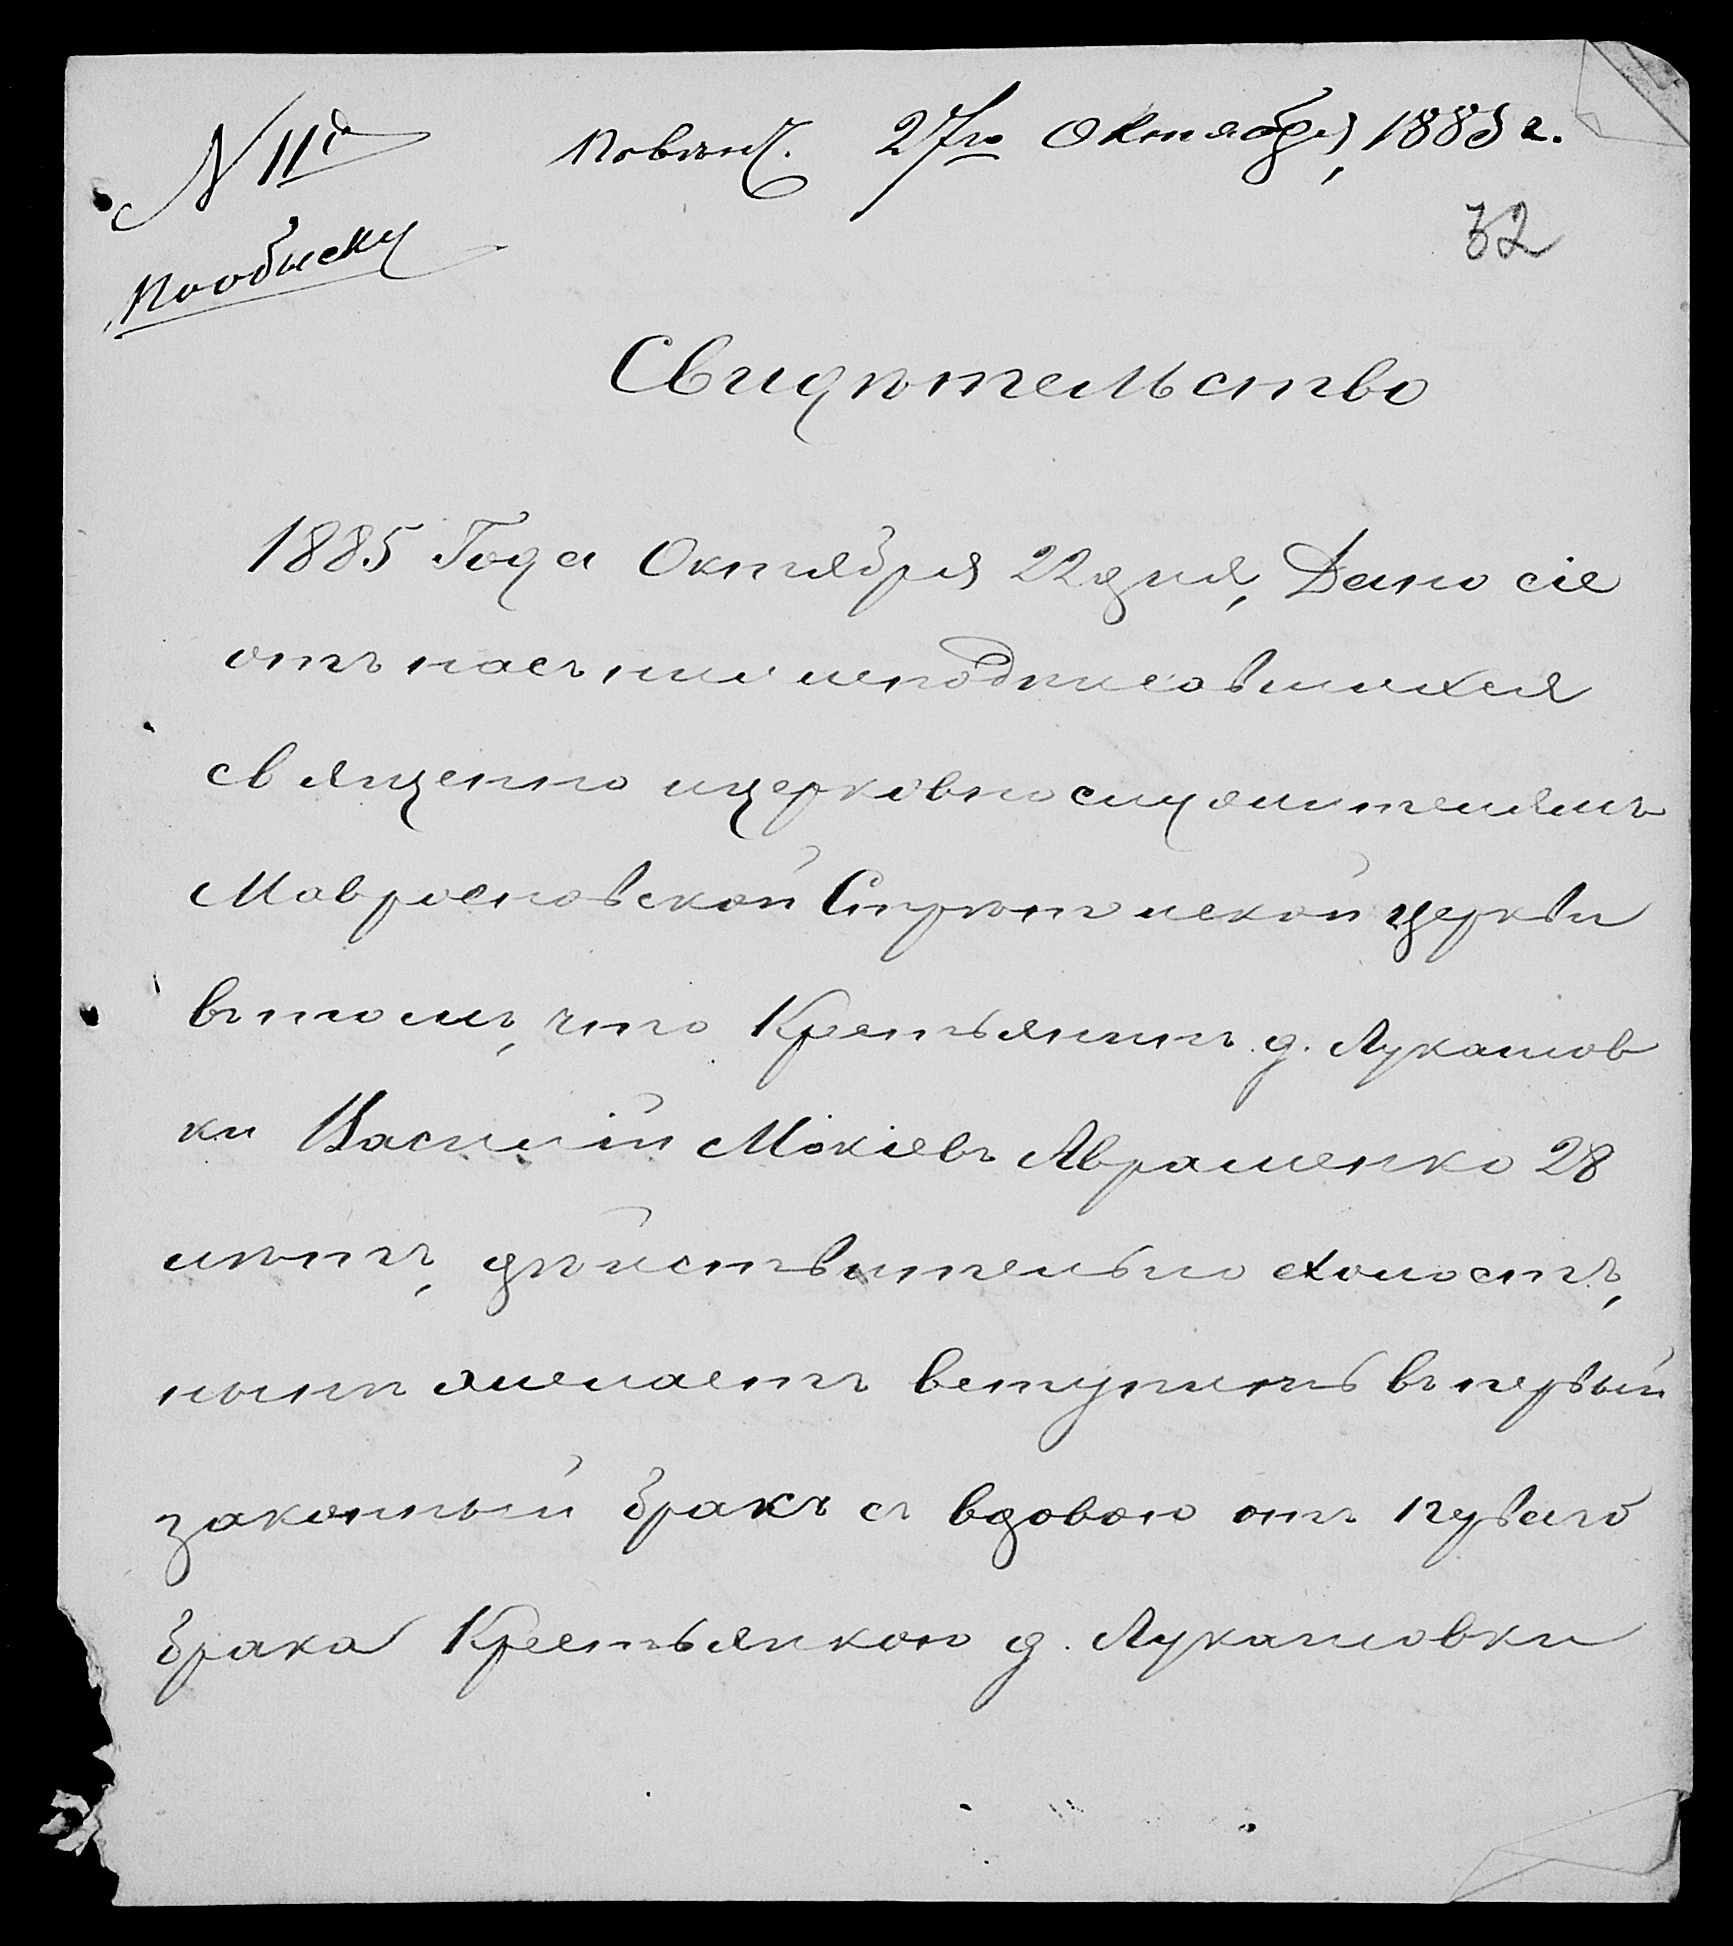 N 11й повѣнч. 27го Октября, 1885 г.
пообыску
32
Свидѣтельство
1885 Года Октября 22 дня, Дано сіе
отъ насъ нижеподписавшихся
священно ицерковно служителямъ
Стрѣтенской церкви
въ томъ, что Крестьянинъ д. Лукашов
ки Василій Мокіевъ Авраменко 28
лѣтъ, дѣйствительно холостъ,
нынѣ желаетъ вступить въ первый
законный бракъ съ вдовою отъ перваго
брака Крестьянкою д. Лукашовки